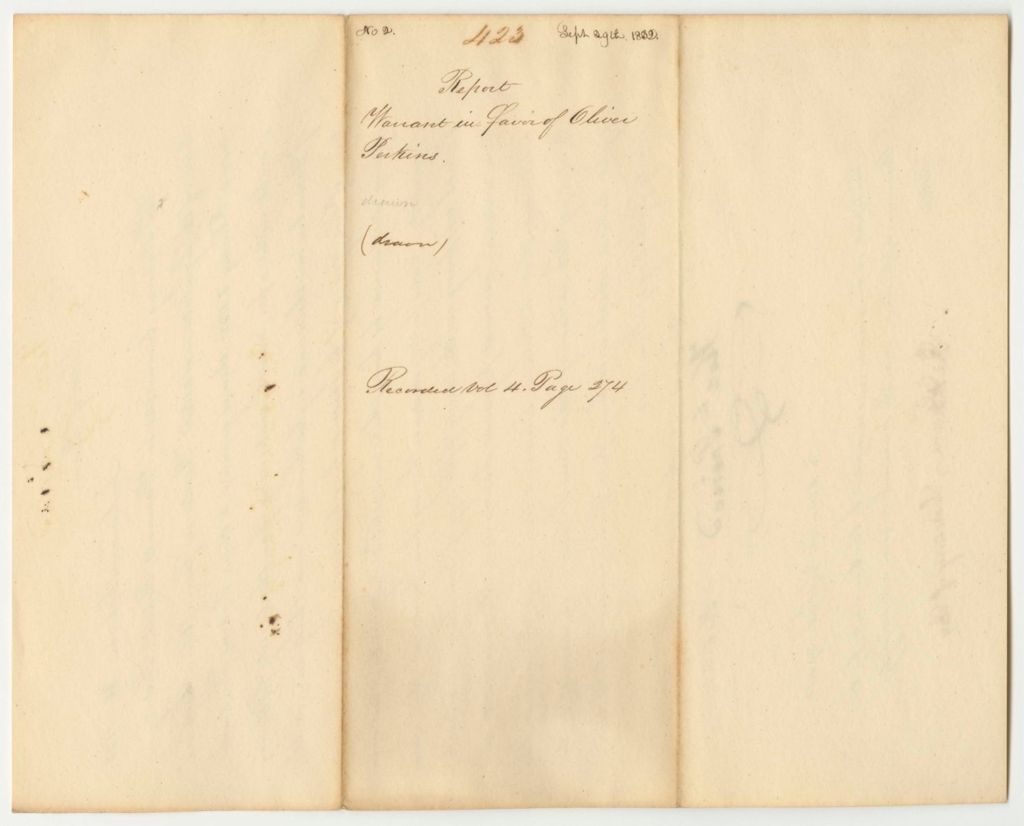 No 2. 423 Sept 29th. 1832.
Report
Warrant in favor of Oliver
Perkins.
drawn
(drawn)
Recorded Vol 4. Page 274